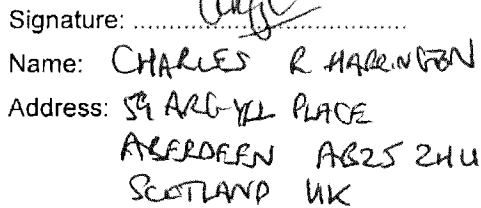 Signature: ....................................
Name: CHARLES R HARRINGTON
Address: 59 ARGYLL PLACE
ABERDEEN AB25 2HU
SCOTLAND UK